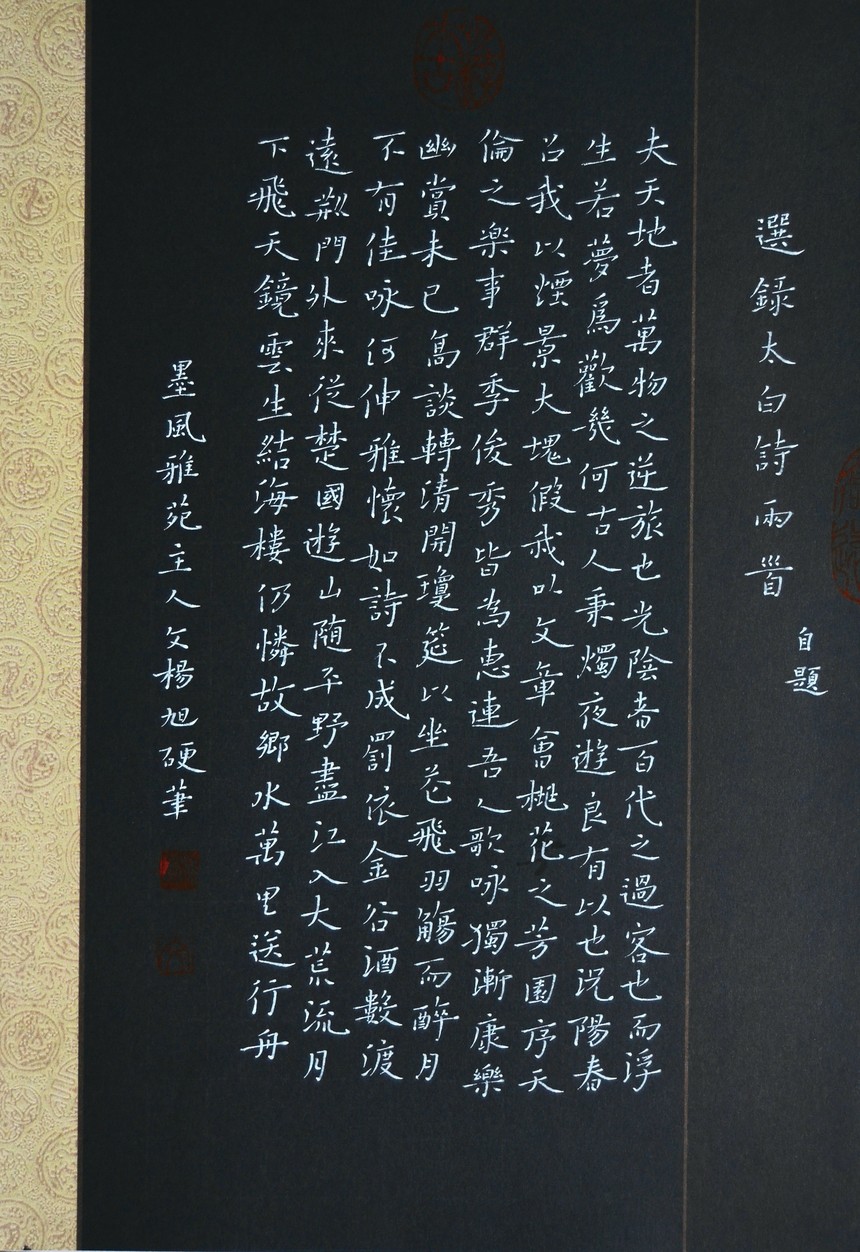 選錄太白詩兩首
自題
夫天地者萬物之逆旅也光陰者百代之過客也而浮
生若夢爲歡幾何古人秉燭夜遊良有以也況陽春
召我以煙景大塊假我以文章會桃花之芳園序天
倫之樂事群季俊秀皆為惠連吾人歌咏獨漸康樂
幽賞未已高談轉清開瓊筵以坐花飛羽觴而醉月
不有佳咏何伸雅懷如詩不成罰依金谷酒數渡
遠荆門外來從楚國遊山随平野盡江入大荒流月
下飛天鏡雲生結海樓仍憐故鄉水萬里送行舟
墨風雅苑主人文楊旭硬筆